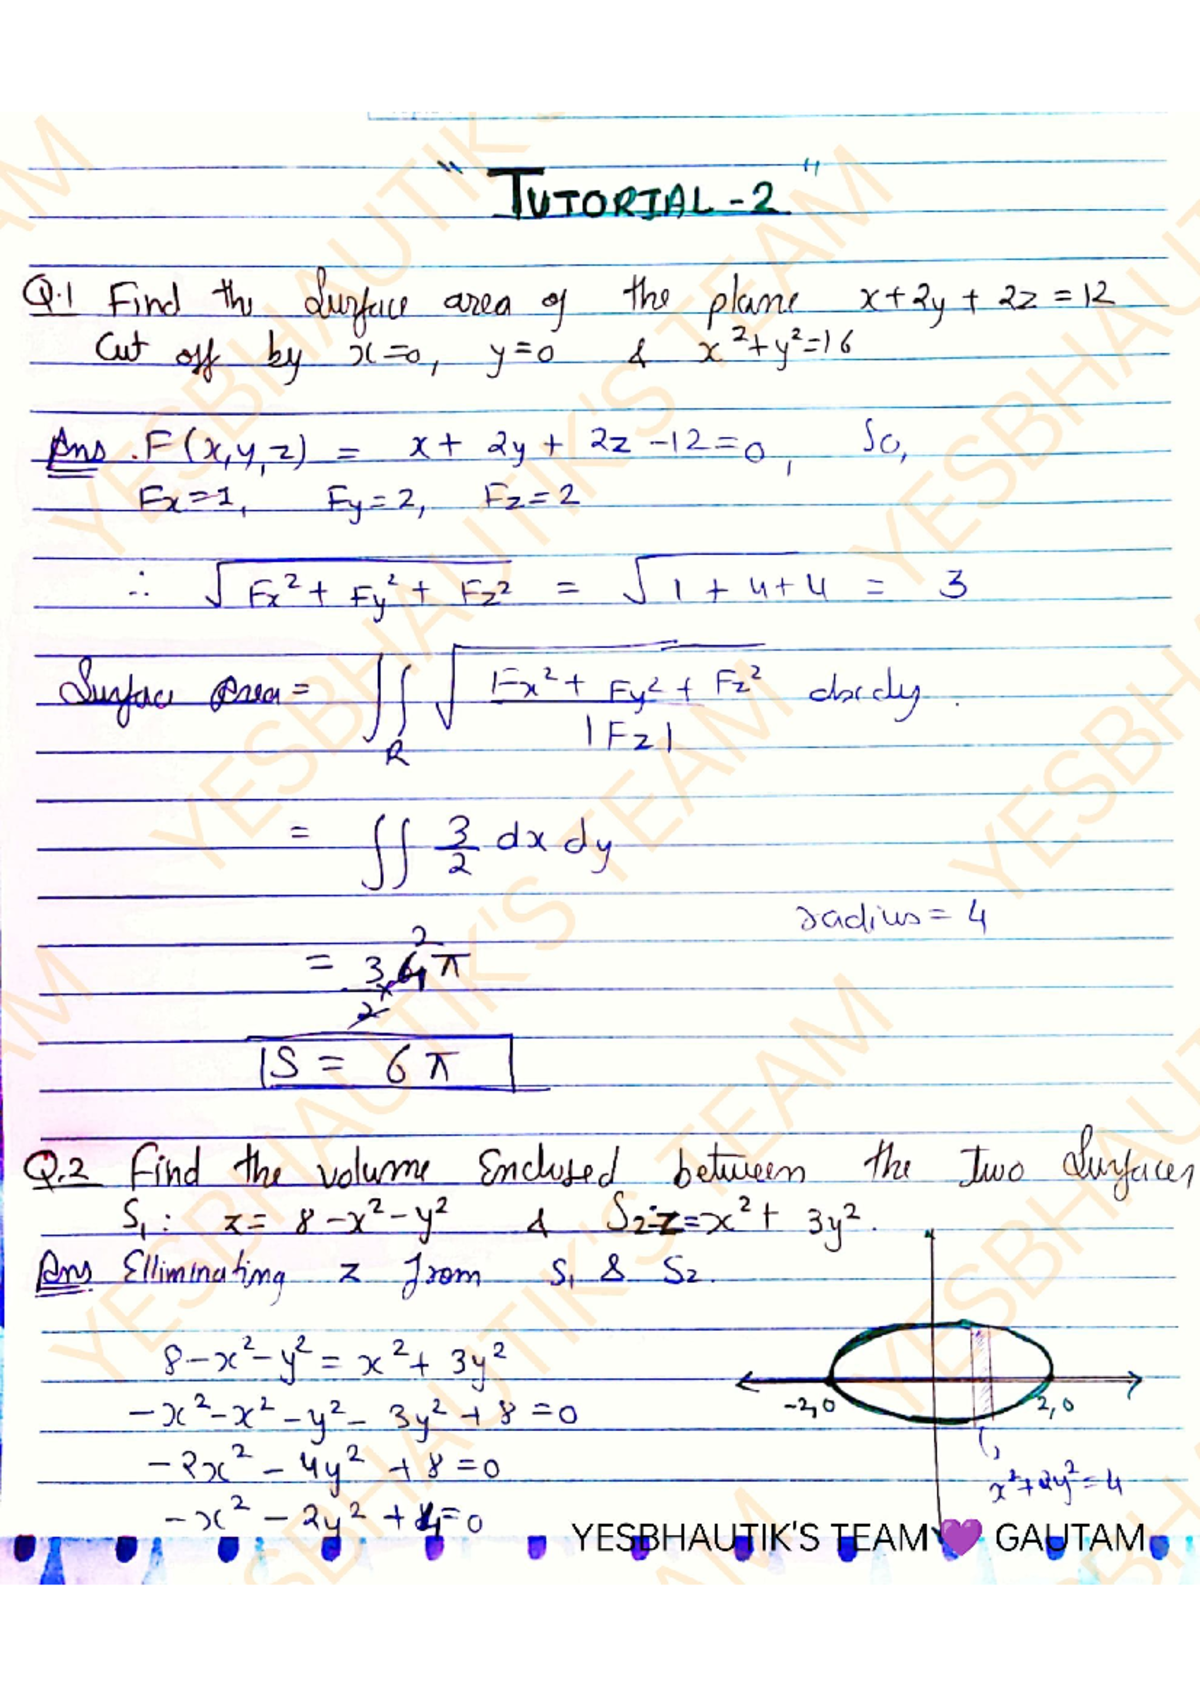 " TUTORIAL-2 "
Q.1 Find the Surface area of the plane x+2y+2z=12
Cut off by x=0, y=0 & x²+y²=16
Ans. F(x,y,z) = x+ 2y+ 2z-12=0, So,
Fx=1, Fy=2, Fz=2
∴ √Fx²+ Fy²+ Fz² = √1+4+4 = 3
Surface Area = ∬_R √Fx²+ Fy²+ Fz² / |Fz| dxdy.
= ∬ 3/2 dx dy
radius = 4
= 3×4π / 2
S = 6π
Q.2 Find the volume Enclosed between the two Surfaces
S₁: z= 8-x²-y² & S₂: z=x²+ 3y².
Ans Elliminating z from S₁ & S₂.
8-x²-y²= x²+ 3y²
-x²-x²-y²- 3y²+8=0
-2x²-4y²+8=0
-x²-2y²+4=0
-2,0
2,0
x²+2y²=4
YESBHAUTIK'S TEAM💜 GAUTAM
YESBHAUTIK'S TEAM